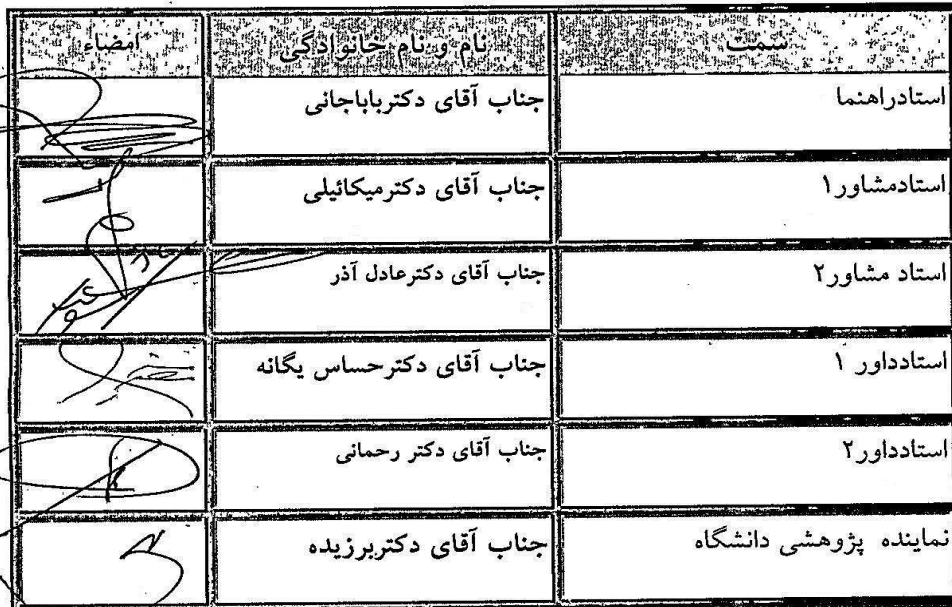 سمت نام و نام خانوادگی امضاء
استادراهنما جناب آقای دکترباباجانی
استادمشاور۱ جناب آقای دکترمیکائیلی
استاد مشاور۲ جناب آقای دکترعادل آذر
استادداور ۱ جناب آقای دکترحساس یگانه
استادداور۲ جناب آقای دکتر رحمانی
نماینده پژوهشی دانشگاه جناب آقای دکتربرزیده